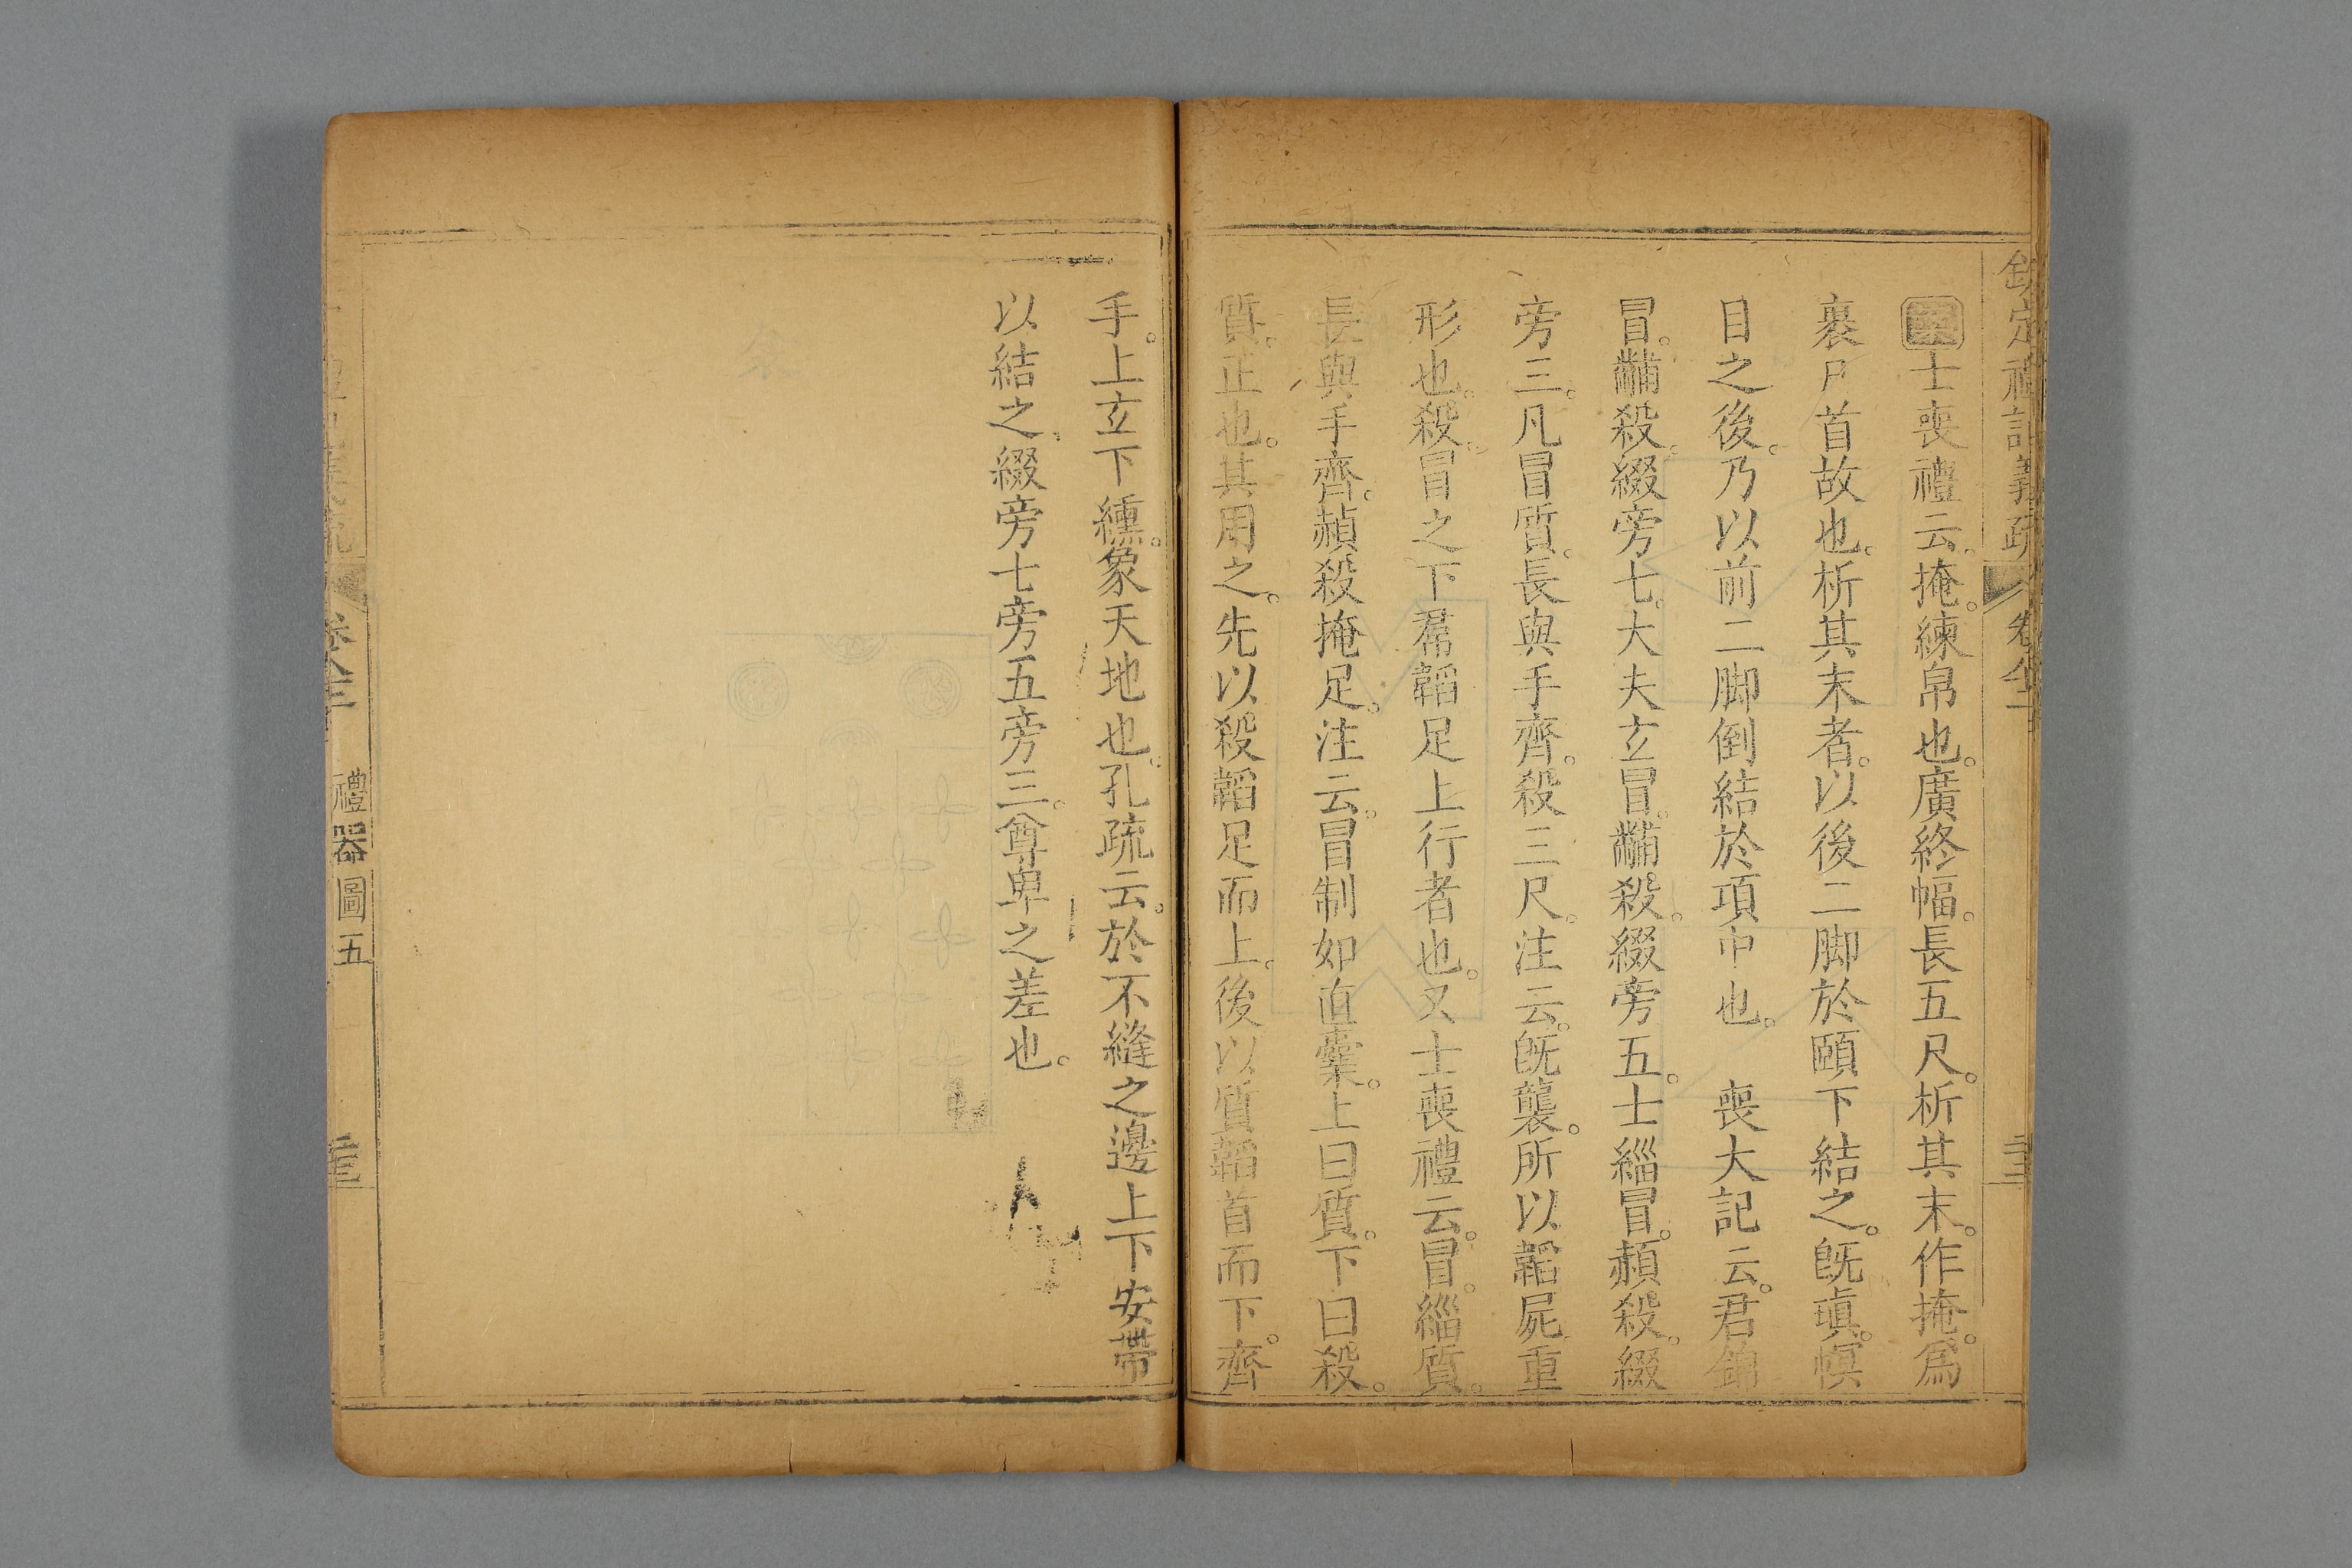 欽定禮記義疏 卷八十二
案士喪禮云。掩。練帛也。廣終幅。長五尺。析其末。作掩。爲
裹尸首故也。析其末者。以後二脚於頤下結之。旣瑱。幎
目之後。乃以前二脚倒結於項中也。 喪大記云。君錦
冒。黼殺。綴旁七。大夫玄冒。黼殺。綴旁五。士緇冒。赬殺。綴
旁三。凡冒質。長與手齊。殺三尺。注云。旣襲。所以韜屍重
形也。殺。冒之下帬韜足上行者也。又士喪禮云。冒。緇質。
長與手齊。赬殺掩足。注云。冒制如直囊。上曰質。下曰殺。
質。正也。其用之。先以殺韜足而上。後以質韜首而下。齊
手。上玄下纁。象天地也。孔疏云。於不縫之邊上下安帶
以結之。綴旁七旁五旁三。尊卑之差也。
禮器圖五